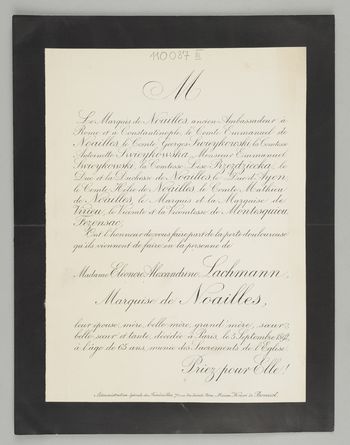 110037 III
M
Le Marquis de Noailles, ancien Ambassadeur à
Rome et à Constantinople, le Comte Emmanuel de
Noailles, le Comte Georges Swieykowski, la Comtesse
Antoinette Swieykowska, Monsieur Emmanuel
Swieykowski, la Comtesse Lise Przezdziecka, le
Duc et la Duchesse de Noailles, le Duc d'Ayen,
le Comte Hélie de Noailles, le Comte Mathieu
de Noailles, le Marquis et la Marquise de
Virieu, le Vicomte et la Vicomtesse de Montesquiou
Fezensac,
Ont l'honneur de vous faire part de la perte douloureuse
qu'ils viennent de faire en la personne de
Madame Eléonore Alexandrine Lachmann,
Marquise de Noailles,
leur épouse, mère, belle-mère, grand'mère, sœur,
belle-sœur et tante, décédée à Paris, le 5 Septembre 1892,
à l'âge de 65 ans, munie des Sacrements de l'Eglise.
Priez pour Elle!
Administration Spéciale des Funérailles, Maison Henri de Borniol